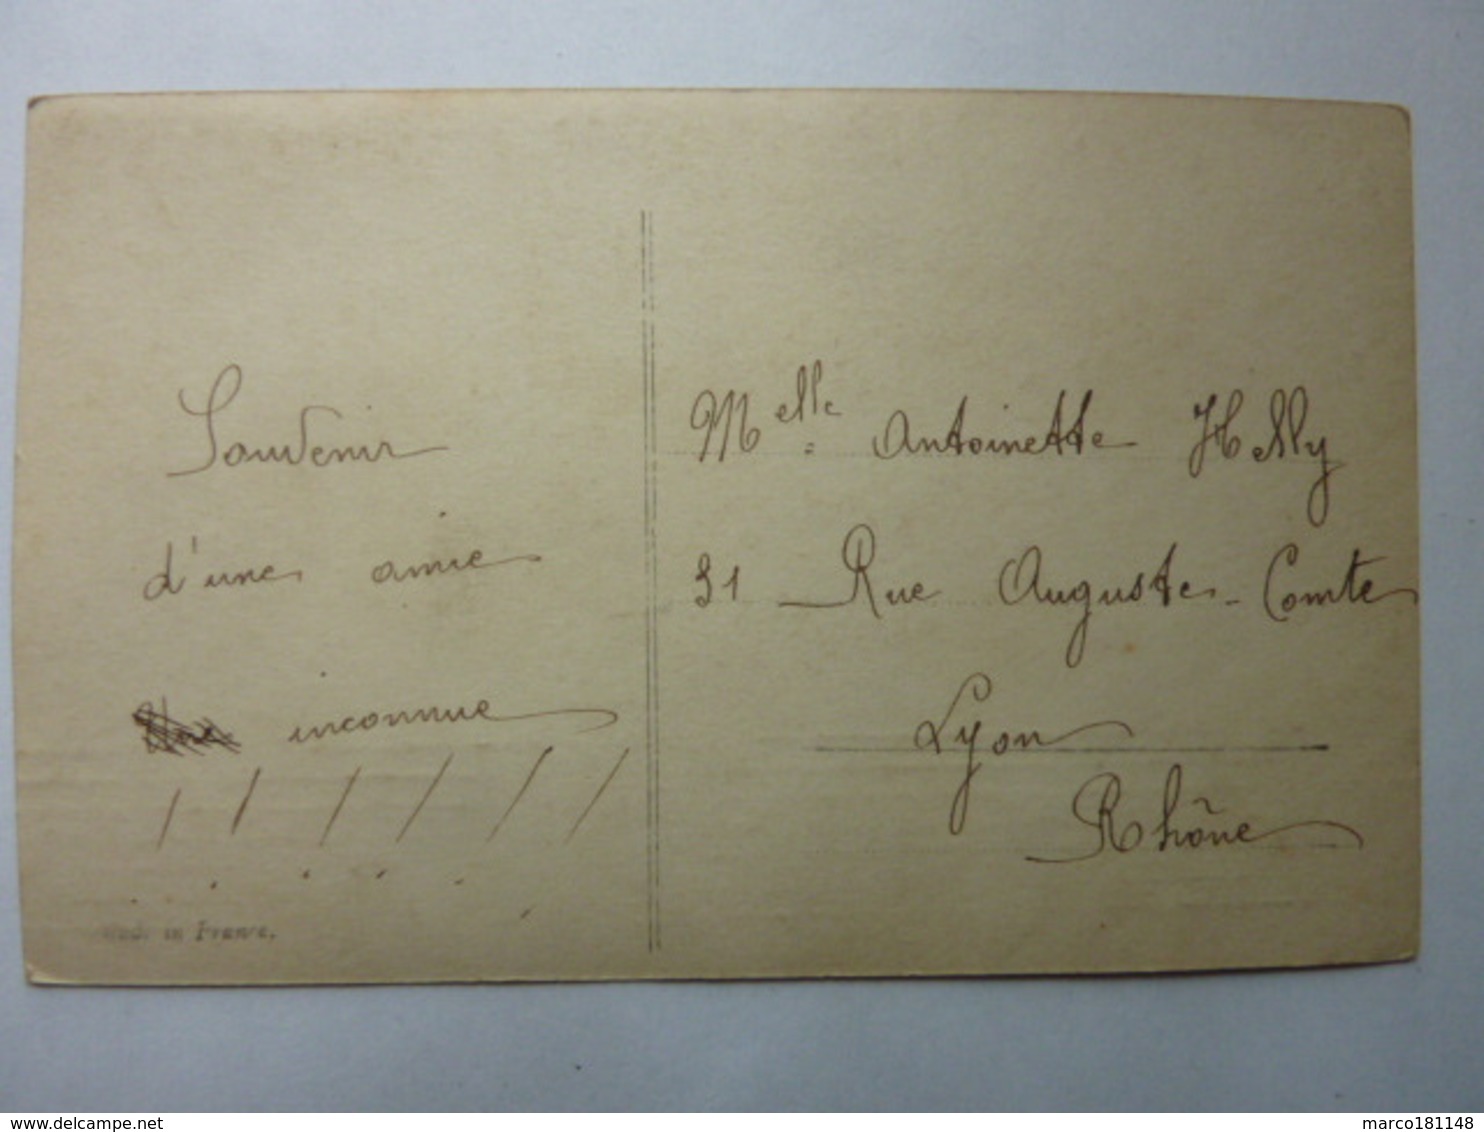 Souvenir
d'une amie
inconnue
! ! ! ! ! !
Made in France.
Melle Antoinette Helly
31 Rue Auguste-Comte
Lyon
Rhône
delcampe.net
marco181148